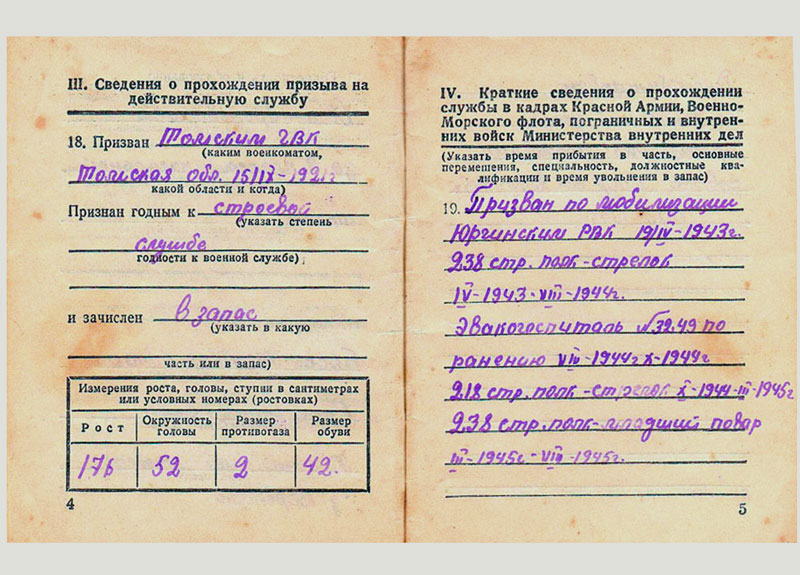 III. Сведения о прохождении призыва на
действительную службу
18. Призван Томским ГВК
(каким военкоматом,
Томская обл. 15/IX-1921г
какой области и когда)
Признан годным к строевой
(указать степень
службе
годности к военной службе)
и зачислен в запас
(указать в какую
часть или в запас)
Измерения роста, головы, ступни в сантиметрах
или условных номерах (ростовках)
Рост Окружность головы Размер противогаза Размер обуви
176 52 2 42.
4
IV. Краткие сведения о прохождении
службы в кадрах Красной Армии, Военно-
Морского флота, пограничных и внутрен-
них войск Министерства внутренних дел
(Указать время прибытия в часть, основные
перемещения, специальность, должностные ква-
лификации и время увольнения в запас)
19. Призван по мобилизации
Юргинским РВК 19/IV-1943г.
238 стр. полк-стрелок
IV-1943-VIII-1944г.
Эвакогоспиталь №3249 по
ранению VIII-1944г X-1944г
218 стр. полк-стрелок X-1944-III-1945г
238 стр. полк-младший повар
III-1945г-VIII-1945г.
5